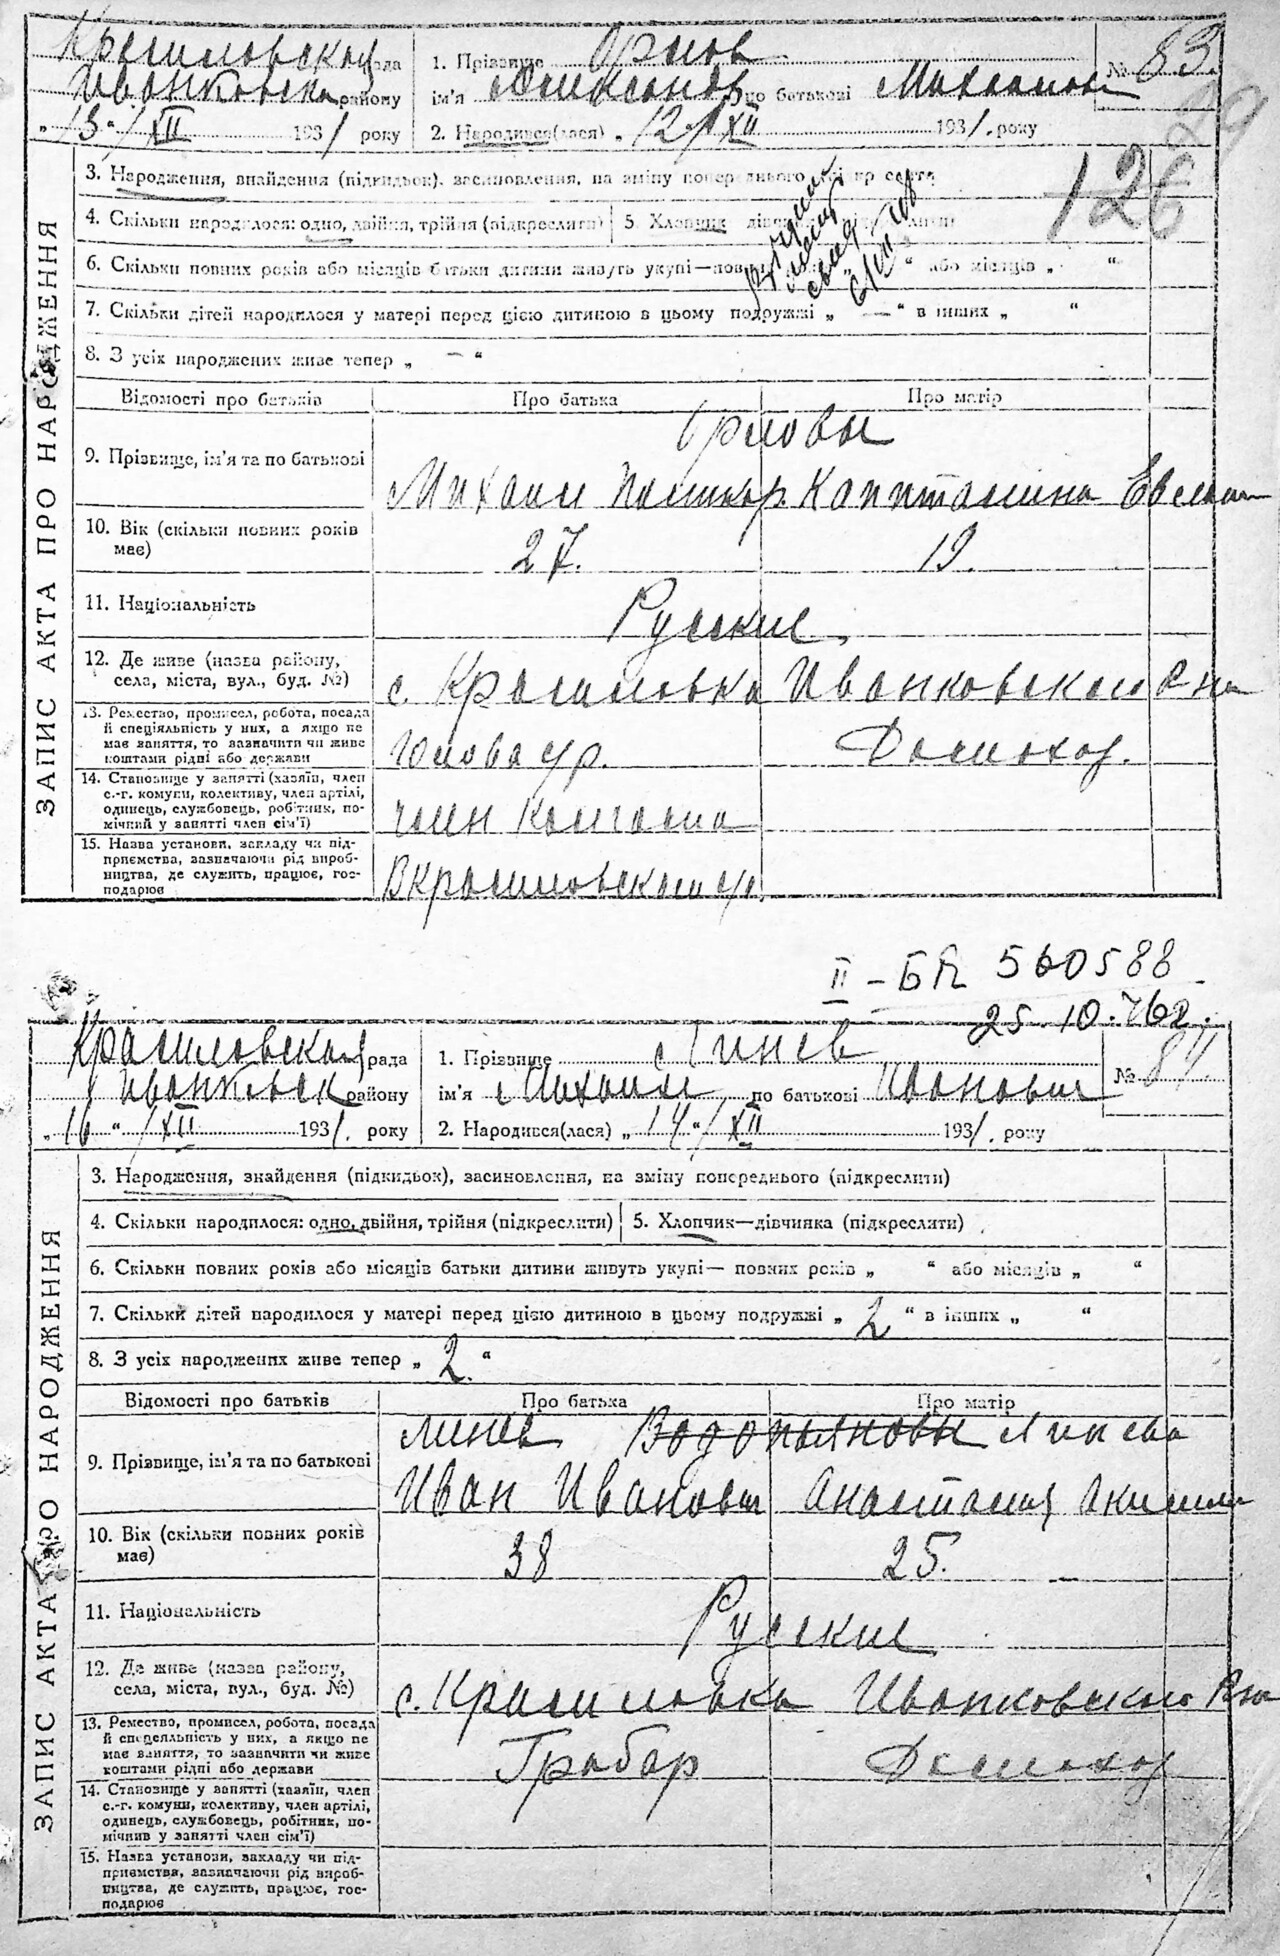 Красиловская рада
Иванковска району
„ 13 “ / XII 1931 року
1. Прізвище Орлов
ім'я Александр по батькові Михайлов
2. Народився(лася) „ 12 “ / XII 1931. року
№ 83.
29
126
ЗАПИС АКТА ПРО НАРОДЖЕННЯ
3. Народження, знайдення (підкидьок), засиновлення, на зміну попереднього
4. Скільки народилося: одно, двійня, трійня (підкреслити)
5. Хлопчик
6. Скільки повних років або місяців батьки дитини живуть укупі— “ або місяців „ “
7. Скільки дітей народилося у матері перед цією дитиною в цьому подружжі „ — “ в інших „ “
8. З усіх народжених живе тепер „ — “
Відомості про батьків
Про батька
Про матір
9. Прізвище, ім'я та по батькові
Орловы
Михаил Капиталина
10. Вік (скільки повних років має)
27.
19.
11. Національність
Русские
12. Де живе (назва району, села, міста, вул., буд. №)
с. Красиловка Иванковского Р на
13. Ремество, промисел, робота, посада
й спеціяльність у них, а якщо не
має заняття, то зазначити чи живе
коштами рідні або держави
Голова с/р.
Домохоз.
14. Становище у занятті (хазяїн, член
с.-г. комуни, колективу, член артілі,
одинець, службовець, робітник, по-
мічний у занятті член сім'ї)
член
15. Назва установи, закладу чи під-
приємства, зазначаючи рід вироб-
ництва, де служить, працює, гос-
подарює
В Красиловском с/р.
II – БК 560588
25.10.76г.
Красиловская рада
Иванковск району
„ 16 “ / XII 1931. року
1. Прізвище Линев
ім'я Михаил по батькові Иванович
2. Народився(лася) „ 14 “ / XII 1931. року
№ 84.
ЗАПИС АКТА ПРО НАРОДЖЕННЯ
3. Народження, знайдення (підкидьок), засиновлення, на зміну попереднього (підкреслити)
4. Скільки народилося: одно, двійня, трійня (підкреслити)
5. Хлопчик—дівчинка (підкреслити)
6. Скільки повних років або місяців батьки дитини живуть укупі— повних років „ “ або місяців „ “
7. Скільки дітей народилося у матері перед цією дитиною в цьому подружжі „ 2 “ в інших „ “
8. З усіх народжених живе тепер „ 2. “
Відомості про батьків
Про батька
Про матір
9. Прізвище, ім'я та по батькові
Линев Водопьяновы Линева
Иван Иванович Анастасия Акимов
10. Вік (скільки повних років має)
38
25.
11. Національність
Русские
12. Де живе (назва району, села, міста, вул., буд. №)
с. Красиловка Иванковского Р на
13. Ремество, промисел, робота, посада
й спеціяльність у них, а якщо не
має заняття, то зазначити чи живе
коштами рідні або держави
Грабар
Домохоз
14. Становище у занятті (хазяїн, член
с.-г. комуни, колективу, член артілі,
одинець, службовець, робітник, по-
мічник у занятті член сім'ї)
15. Назва установи, закладу чи під-
приємства, зазначаючи рід вироб-
ництва, де служить, працює, гос-
подарює